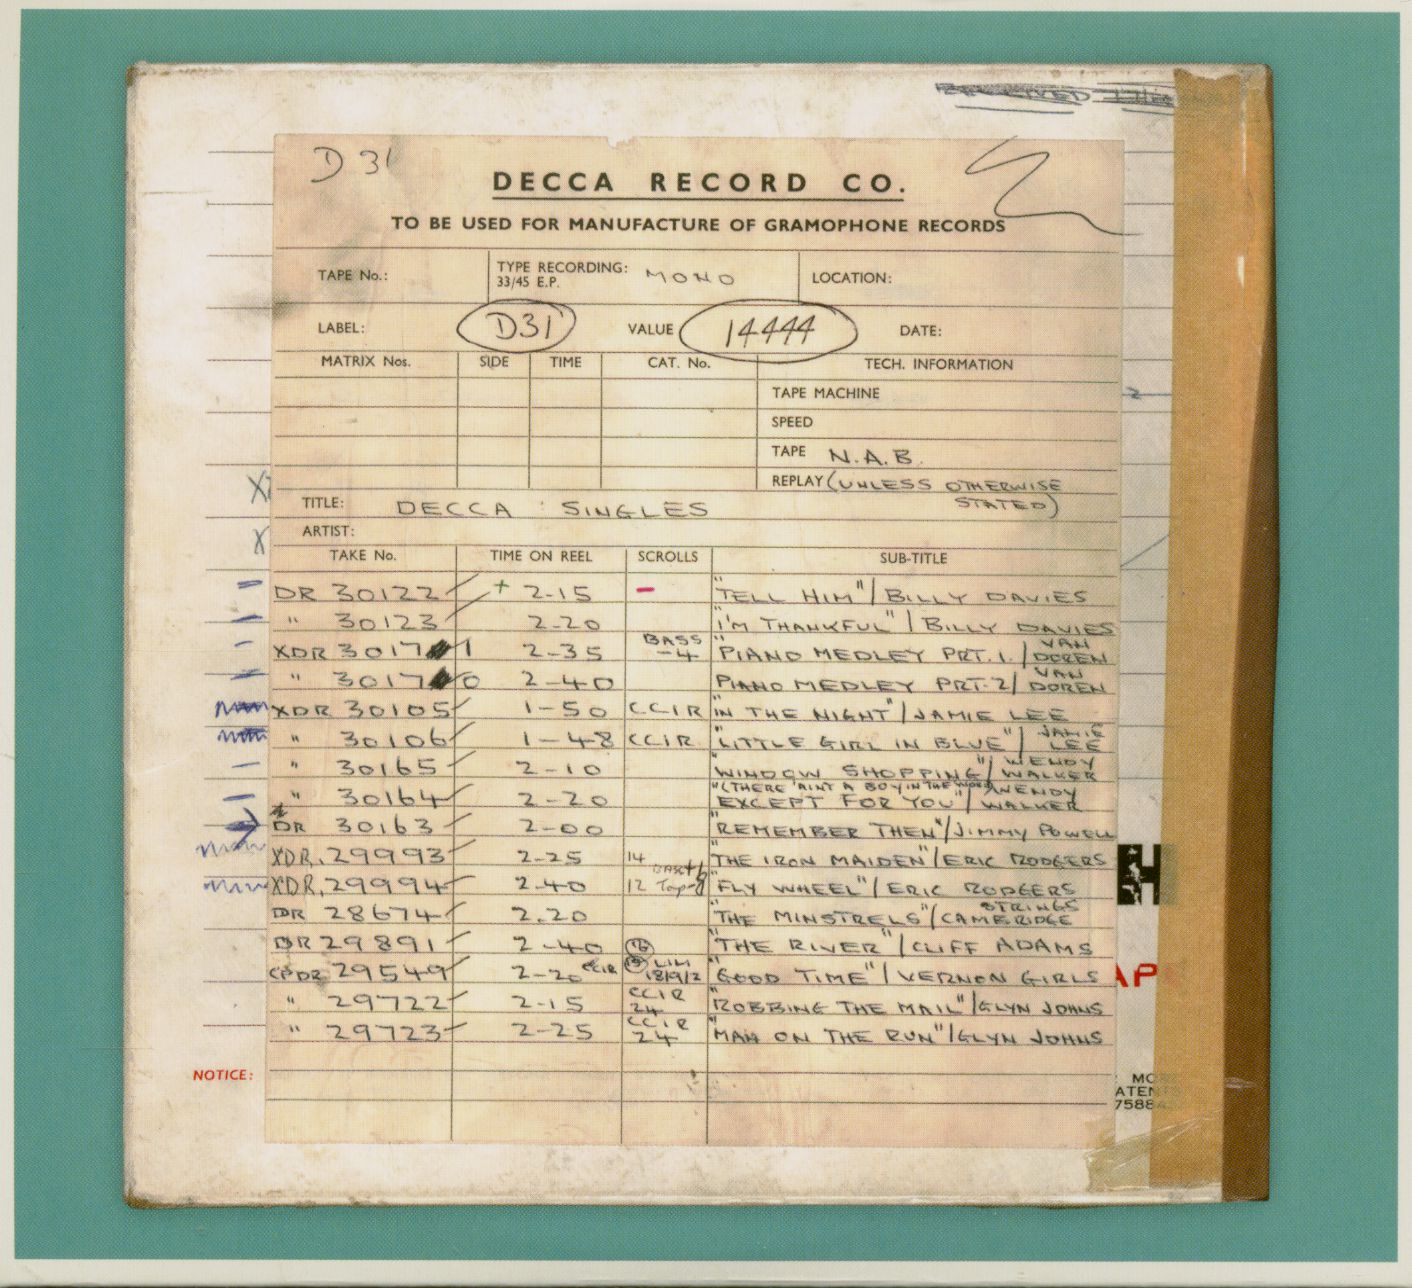 D 31
DECCA RECORD CO.
TO BE USED FOR MANUFACTURE OF GRAMOPHONE RECORDS
TAPE No.: TYPE RECORDING: MONO LOCATION:
33/45 E.P.
LABEL: D31 VALUE 14444 DATE:
MATRIX Nos. SIDE TIME CAT. No. TECH. INFORMATION
TAPE MACHINE
SPEED
TAPE N.A.B.
REPLAY (UNLESS OTHERWISE
STATED)
TITLE: DECCA SINGLES
ARTIST:
TAKE No. TIME ON REEL SCROLLS SUB-TITLE
DR 30122 + 2-15 - "TELL HIM"/BILLY DAVIES
" 30123 2-20 "I'M THANKFUL"/BILLY DAVIES
XDR 30171 2-35 BASS -4 "PIANO MEDLEY PRT.1./VAN DOREN
" 30170 2-40 PIANO MEDLEY PRT.2/VAN DOREN
XDR 30105 1-50 CCIR "IN THE NIGHT"/JAMIE LEE
" 30106 1-48 CCIR "LITTLE GIRL IN BLUE"/JAMIE LEE
" 30165 2-10 "WINDOW SHOPPING"/WENDY WALKER
" 30164 2-20 "(THERE AINT A BOY IN THE WORLD) EXCEPT FOR YOU"/WENDY WALKER
DR 30163 2-00 "REMEMBER THEN"/JIMMY POWELL
XDR. 29993 2-25 14 "THE IRON MAIDEN"/ERIC RODGERS
XDR. 29994 2-40 12 "FLY WHEEL"/ERIC RODGERS
DR 28674 2.20 "THE MINSTRELS"/CAMBRIDGE STRINGS
DR 29891 2-40 16 "THE RIVER"/CLIFF ADAMS
CPDR 29549 2-20 CCIR LIM 18/9/2 "GOOD TIME"/VERNON GIRLS
" 29722 2-15 CCIR 24 "ROBBING THE MAIL"/GLYN JOHNS
" 29723 2-25 CCIR 24 "MAN ON THE RUN"/GLYN JOHNS
NOTICE: